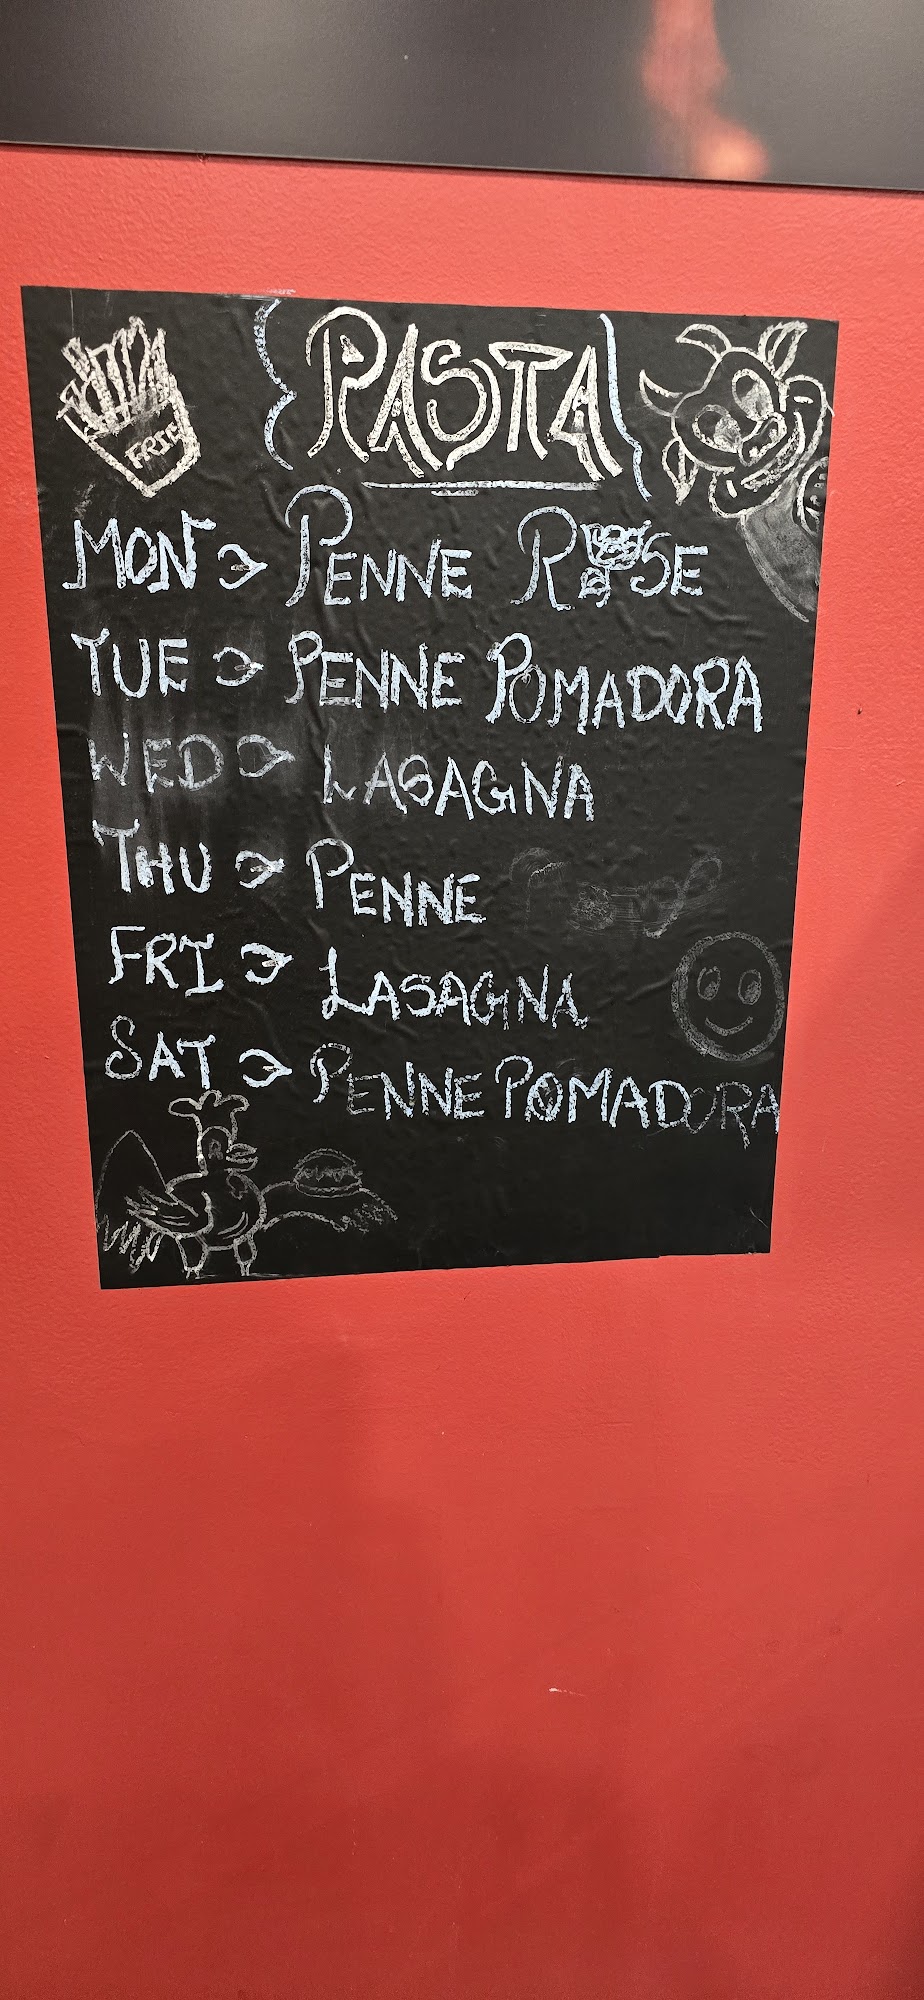 PASTA
FRIE
MON → PENNE ROSE
TUE → PENNE POMADORA
WED → LASAGNA
THU → PENNE
FRI → LASAGNA
SAT → PENNE POMADORA